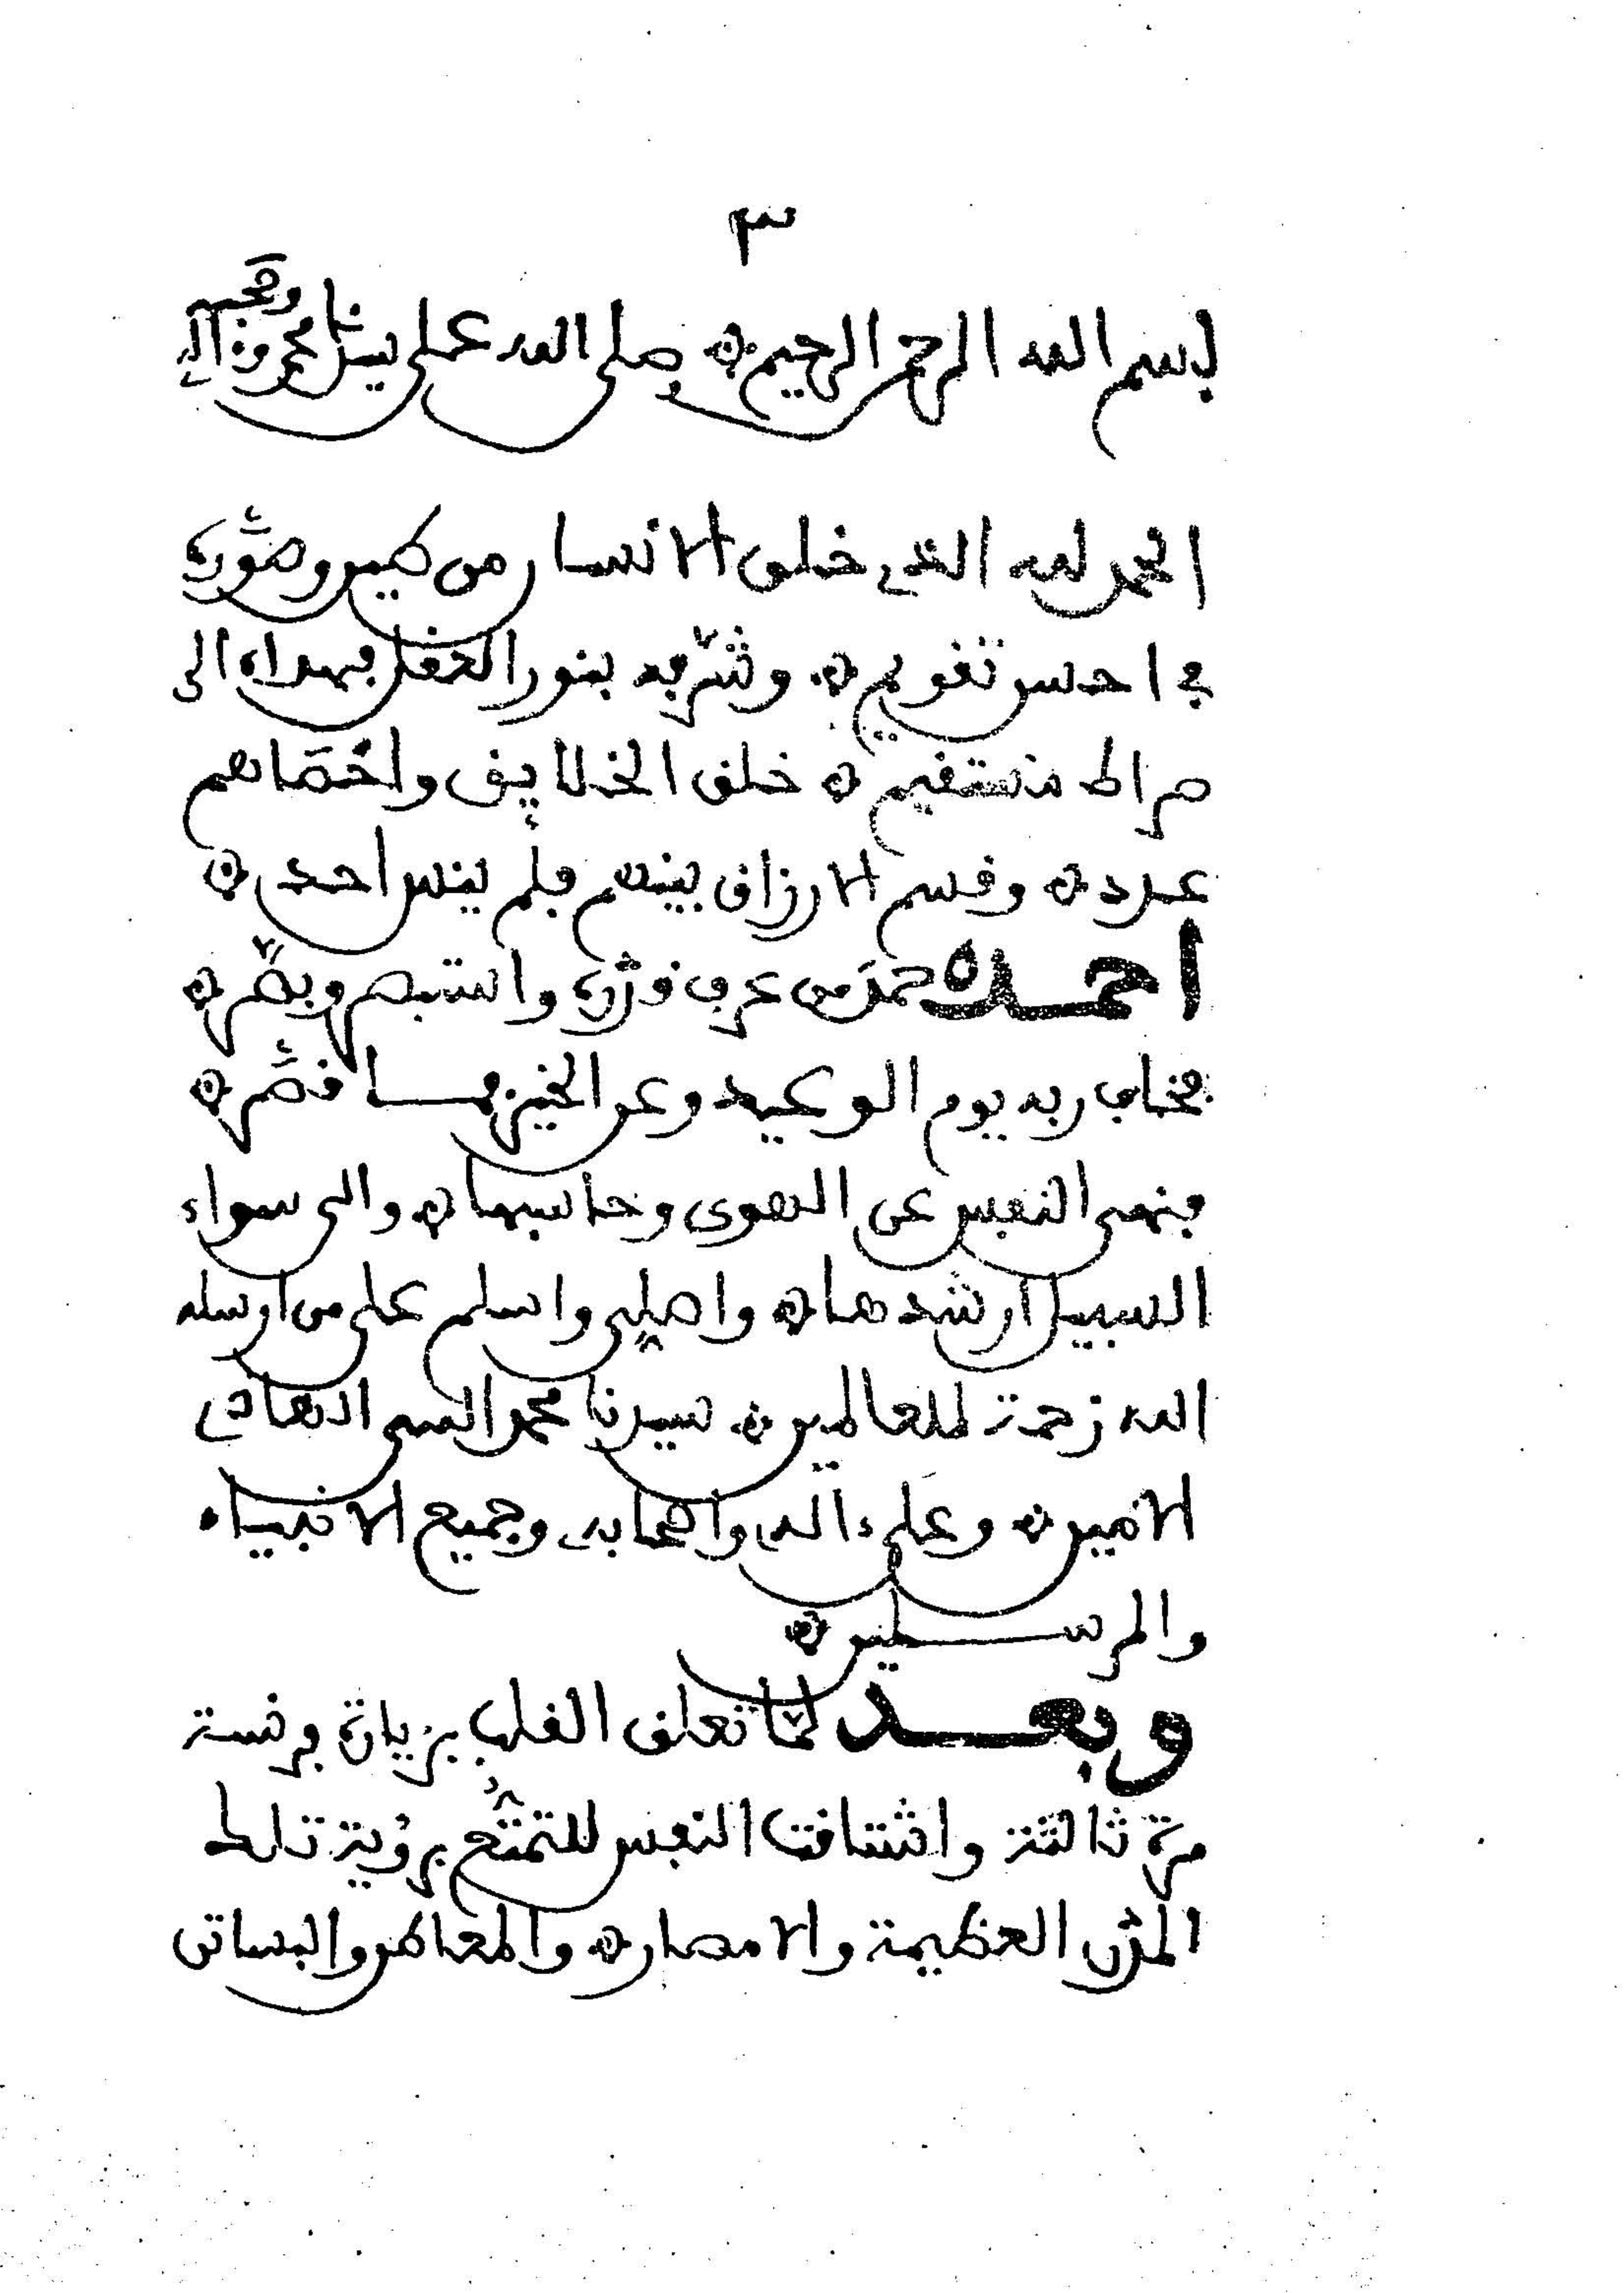 ٣
بسم الله الرحمن الرحيم ۞ صلى الله على سيدنا محمد وءاله وصحبه
الحمد لله الذي خلق الانسان من طين وصوّره
في احسن تقويم ۞ وشرّفه بنور العقل فهداه الى
صراط مستقيم ۞ خلق الخلايق واحصاهم
عدد ۞ وقسم الارزاق بينهم فلم ينس احد ۞
احمده حمد من عرف قدره واستبصر وبصّر ۞
فخاف ربه يوم الوعيد وعن الخير فما قصّر ۞
فنهى النفس عن الهوى وحاسبها ۞ والى سواء
السبيل ارشدها ۞ واصلي واسلم على من ارسله
الله رحمة للعالمين ۞ سيدنا محمد النبي الصادق
الامين ۞ وعلى ءاله واصحابه وجميع الانبياء
والمرسلين ۞
وبعد لمّا تعلق القلب بزيارة فرنسة
مرة ثالثة واشتاقت النفس للتمتّع برؤية تلك
المدن العظيمة والامصار ۞ والمعاطر والبساتن